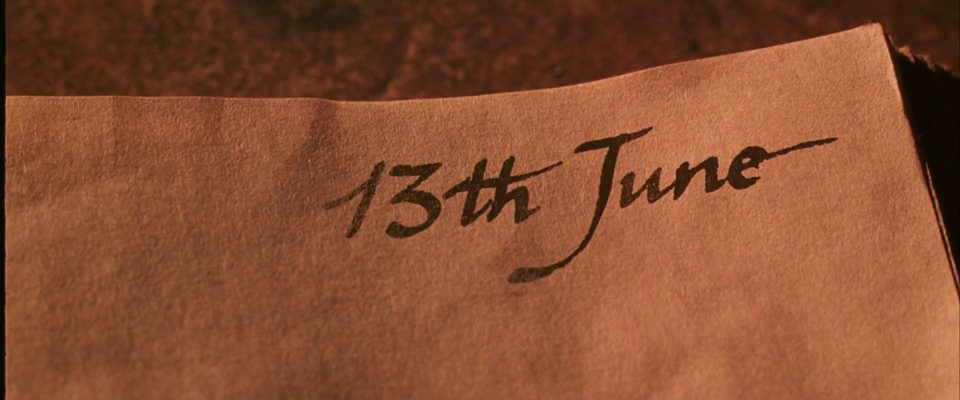 13th June